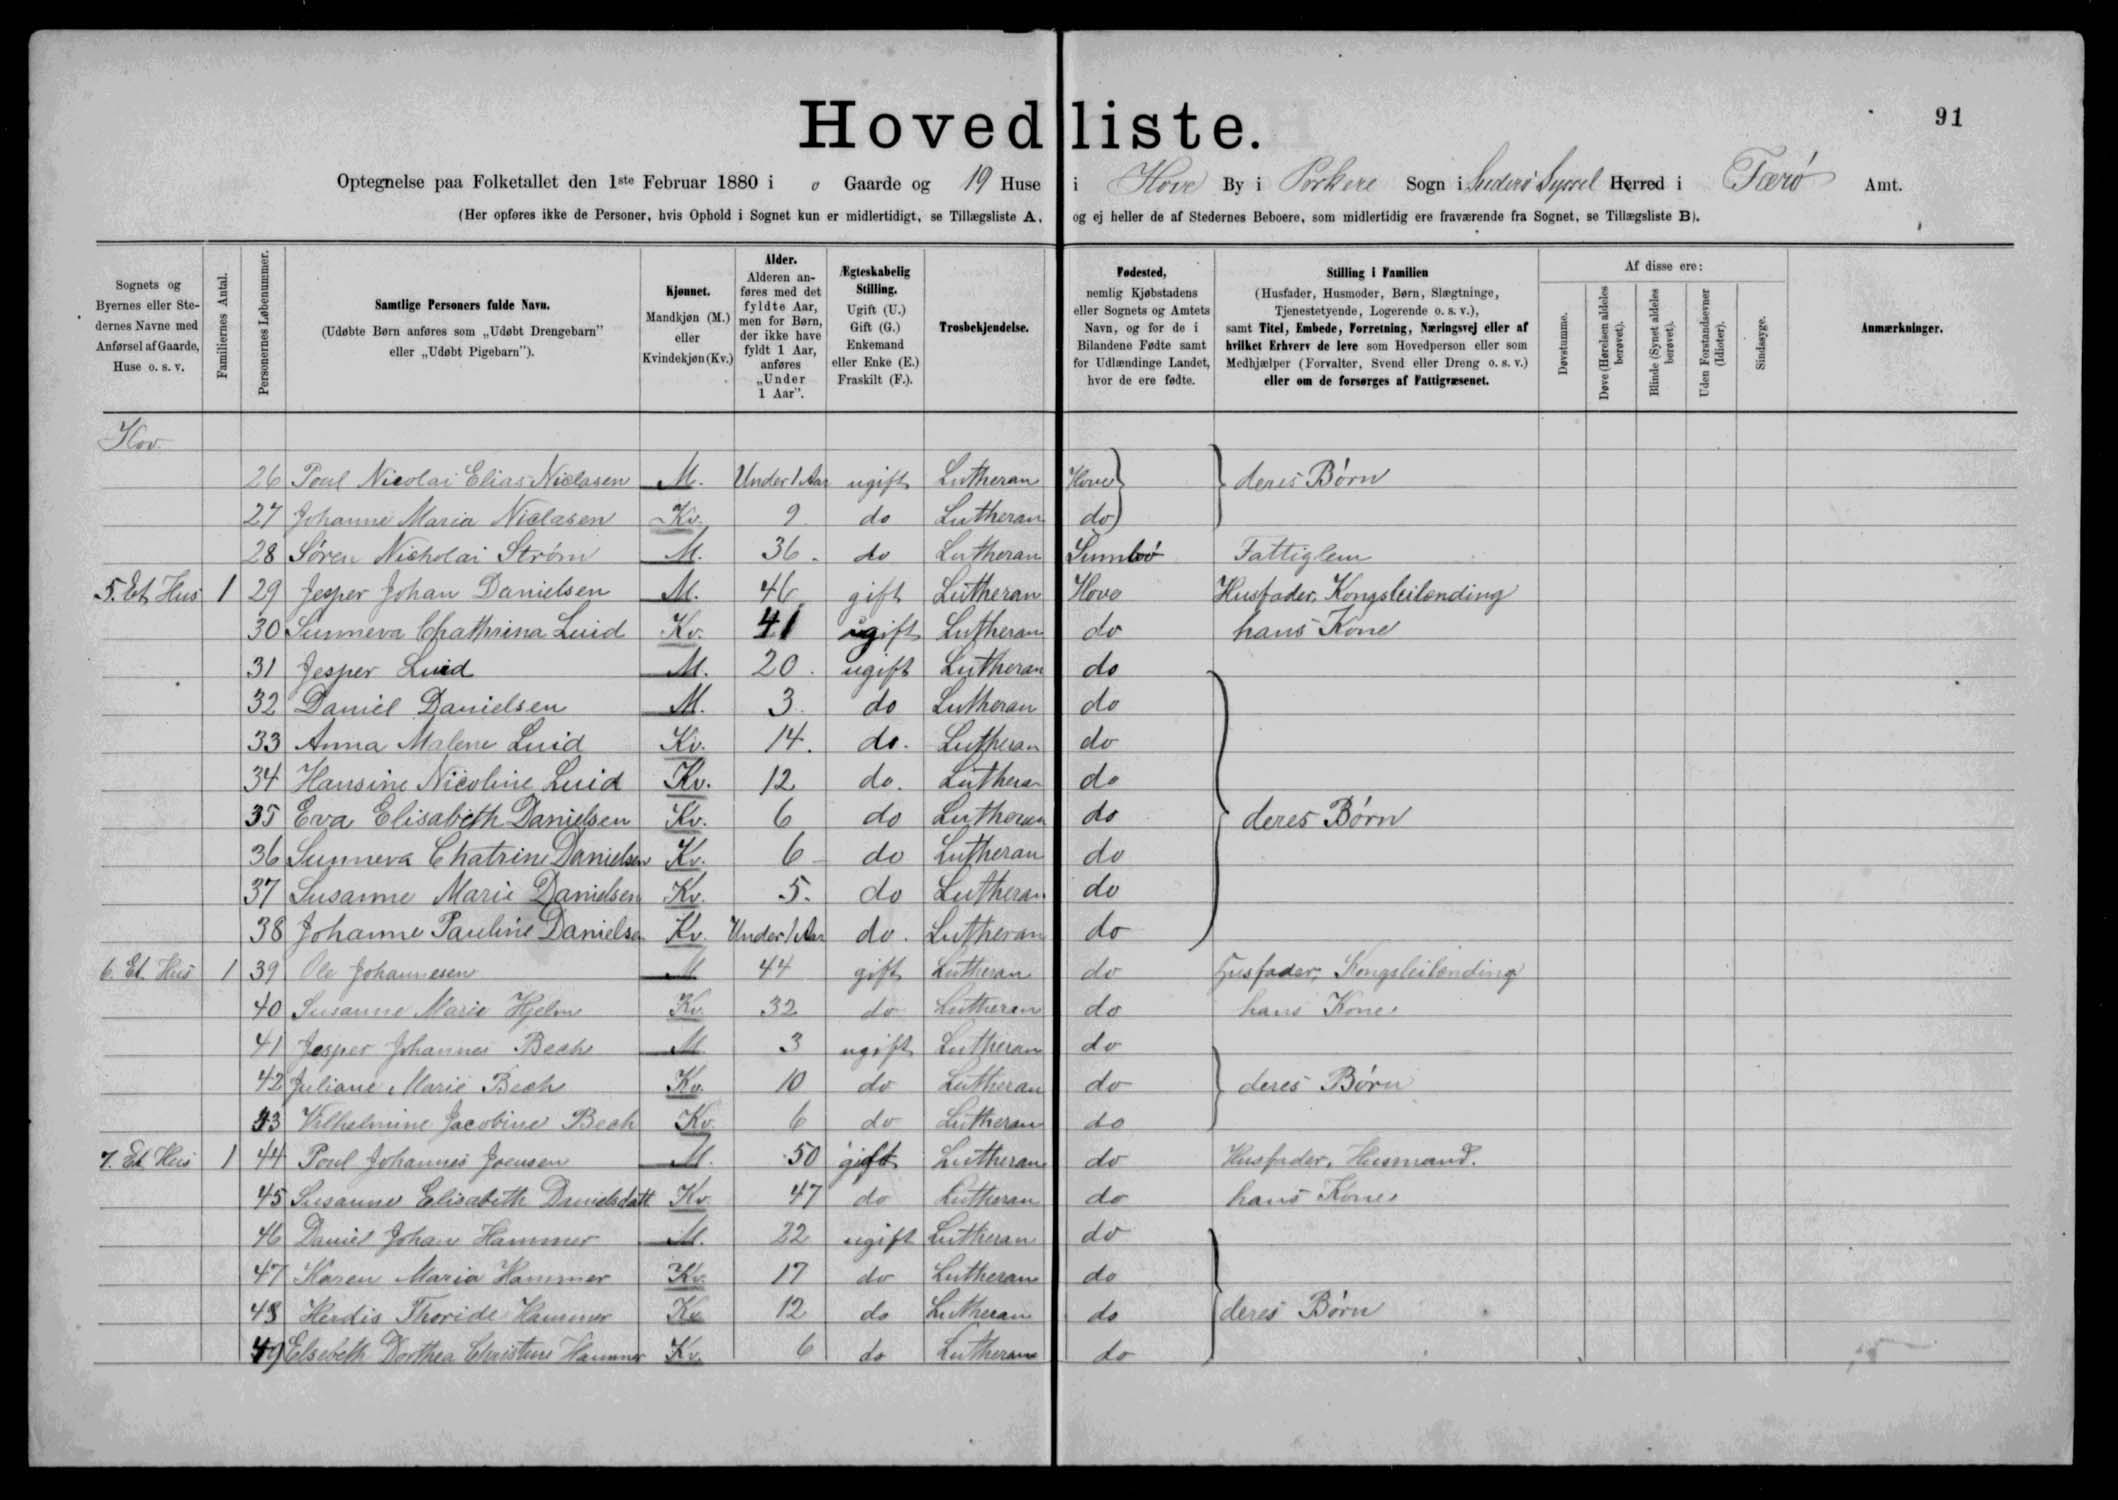 91
Hovedliste.
Optegnelse paa Folketallet den 1ste Februar 1880 i 0 Gaarde og 19 Huse i Hove By i Porkere Sogn i Suderø Syssel Herred i Færø Amt.
(Her opføres ikke de Personer, hvis Ophold i Sognet kun er midlertidigt, se Tillægsliste A, og ej heller de af Stedernes Beboere, som midlertidig ere fraværende fra Sognet, se Tillægsliste B).
Sognets og Byernes eller Stedernes Navne med Anførsel af Gaarde, Huse o. s. v.
Familiernes Antal.
Personernes Løbenummer.
Samtlige Personers fulde Navn.
(Udøbte Børn anføres som „Udøbt Drengebarn" eller „Udøbt Pigebarn").
Kjønnet.
Mandkjøn (M.) eller Kvindekjøn (Kv.)
Alder.
Alderen anføres med det fyldte Aar, men for Børn, der ikke have fyldt 1 Aar, anføres „Under 1 Aar".
Ægteskabelig Stilling.
Ugift (U.) Gift (G.) Enkemand eller Enke (E.) Fraskilt (F.).
Trosbekjendelse.
Fødested,
nemlig Kjøbstadens eller Sognets og Amtets Navn, og for de i Bilandene Fødte samt for Udlændinge Landet, hvor de ere fødte.
Stilling i Familien
(Husfader, Husmoder, Børn, Slægtninge, Tjenestetyende, Logerende o. s. v.),
samt Titel, Embede, Forretning, Næringsvej eller af hvilket Erhverv de leve som Hovedperson eller som Medhjælper (Forvalter, Svend eller Dreng o. s. v.) eller om de forsørges af Fattigvæsenet.
Af disse ere:
Døvstumme.
Døve (Hørelsen aldeles berøvet).
Blinde (Synet aldeles berøvet).
Uden Forstandsevner (Idioter).
Sindssyge.
Anmærkninger.
Hov.
26 Poul Nicolai Elias Niclasen M. Under 1 Aar ugift Lutheran Hove deres Børn
27 Johanne Maria Niclasen Kv. 9 do Lutheran do
28 Søren Nicholai Strøm M. 36 do Lutheran Sumbø Fattiglem
5. Et Hus 1 29 Jesper Johan Danielsen M. 46 gift Lutheran Hove Husfader, Kongsleilending
30 Sunneva Chathrina Luid Kv. 41 gift Lutheran do hans Kone
31 Jesper Luid M. 20 ugift Lutheran do
32 Daniel Danielsen M. 3 do Lutheran do
33 Anna Malene Luid Kv. 14. do. Lutheran do
34 Hansine Nicoline Luid Kv. 12 do. Lutheran do
35 Eva Elisabeth Danielsen Kv. 6 do Lutheran do deres Børn
36 Sunneva Chatrine Danielsen Kv. 6 do Lutheran do
37 Susanne Marie Danielsen Kv. 5. do Lutheran do
38 Johanne Pauline Danielsen Kv. Under 1 Aar do. Lutheran do
6. Et Hus 1 39 Ole Johannesen M 44 gift Lutheran do Husfader, Kongsleilending
40 Susanne Marie Hjelm Kv. 32 do Lutheran do hans Kone
41 Jesper Johannes Bech M 3 ugift Lutheran do
42 Juliane Marie Bech Kv. 10 do Lutheran do deres Børn
43 Vilhelmine Jacobine Bech Kv. 6 do Lutheran do
7. Et Hus 1 44 Poul Johannes Joensen M. 50 gift Lutheran do Husfader, Husmand.
45 Susanne Elisabeth Danielsdatt Kv. 47 do Lutheran do hans Kone
46 Daniel Johan Hammer M. 22 ugift Lutheran do
47 Karen Maria Hammer Kv. 17 do Lutheran do
48 Herdis Thoride Hammer Kv. 12 do Lutheran do deres Børn
49 Elsebeth Dorthea Christine Hammer Kv. 6 do Lutheran do